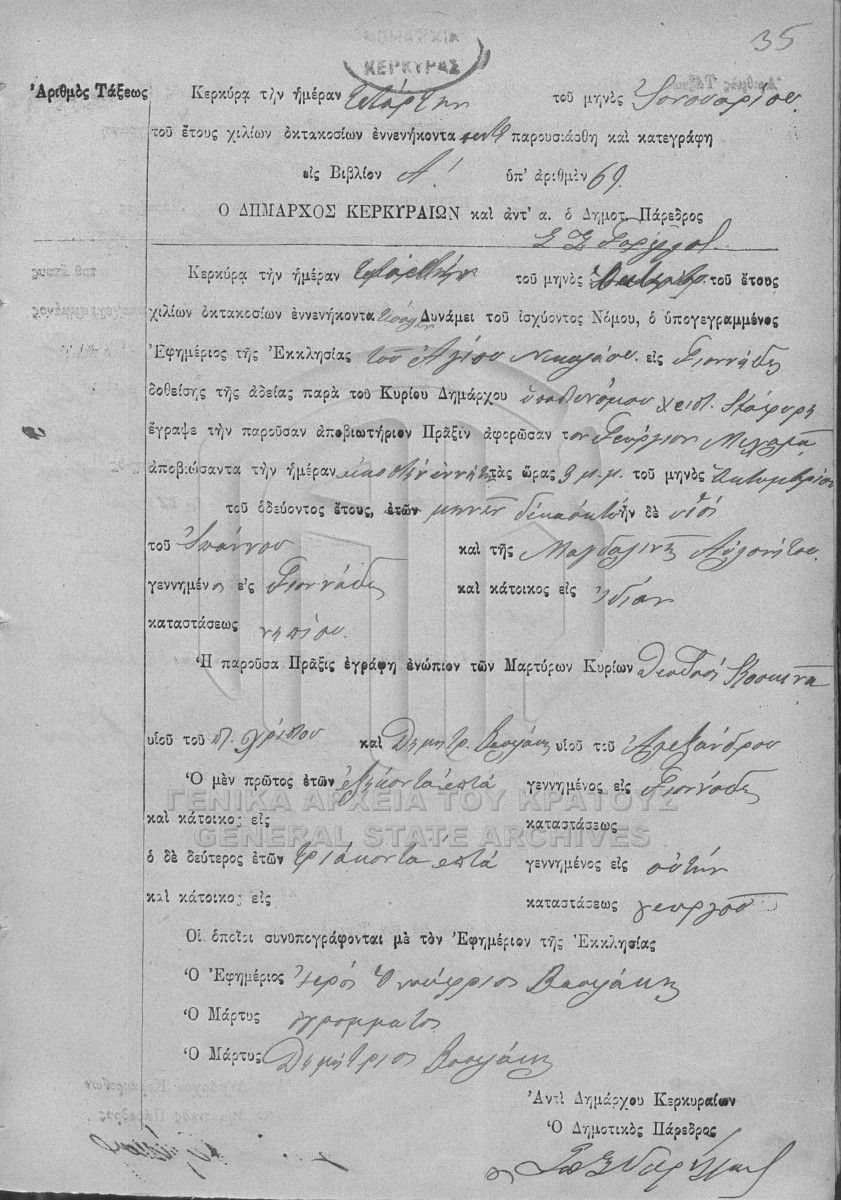 35
ΚΕΡΚΥΡΑΣ
Ἀριθμὸς Τάξεως
Κερκύρᾳ τὴν ἡμέραν τετάρτην τοῦ μηνὸς Ἰανουαρίου
τοῦ ἔτους χιλίων ὀκτακοσίων ἐννενήκοντα παρουσιάσθη καὶ κατεγράφη
εἰς Βιβλίον Α! ὑπ' ἀριθμὲν 69.
Ο ΔΗΜΑΡΧΟΣ ΚΕΡΚΥΡΑΙΩΝ καὶ ἀντ' α. ὁ Δημοτ. Πάρεδρος
Κερκύρᾳ τὴν ἡμέραν τοῦ μηνὸς τοῦ ἔτους
χιλίων ὀκτακοσίων ἐννενήκοντα Δυνάμει τοῦ ἰσχύοντος Νόμου, ὁ ὑπογεγραμμένος
Ἐφημέριος τῆς Ἐκκλησίας τοῦ Ἁγίου Νικολάου εἰς Γιαννάδες
δοθείσης τῆς ἀδείας παρὰ τοῦ Κυρίου Δημάρχου
ἔγραψε τὴν παροῦσαν ἀποβιωτήριον Πρᾶξιν ἀφορῶσαν τον Γεώργιον
ἀποβιώσαντα τὴν ἡμέραν εἰκοστὴν ἐννάτην τὰς ὥρας 9 μ.μ. τοῦ μηνὸς Ὀκτωμβρίου
τοῦ ὁδεύοντος ἔτους, ἐτῶν μηνῶν δεκαοκτὼ ἦν δὲ υἱὸς
τοῦ Ἰωάννου καὶ τῆς Μαγδαληνῆς Αὐλωνίτου
γεννημένος εἰς Γιαννάδες καὶ κάτοικος εἰς ἰδίαν
καταστάσεως νηπίου.
Ἡ παροῦσα Πρᾶξις ἐγράφη ἐνώπιον τῶν Μαρτύρων Κυρίων
υἱοῦ τοῦ π. Χρίστου καὶ Δημητρ. Βασιλάκη υἱοῦ τοῦ Ἀλεξάνδρου
Ὁ μὲν πρῶτος ἐτῶν ἑξήκοντα ἑπτά γεννημένος εἰς Γιαννάδες
ΓΕΝΙΚΑ ΑΡΧΕΙΑ ΤΟΥ ΚΡΑΤΟΥΣ
καὶ κάτοικος εἰς καταστάσεως
GENERAL STATE ARCHIVES
ὁ δὲ δεύτερος ἐτῶν τριάκοντα ἑπτά γεννημένος εἰς αὐτήν
καὶ κάτοικος εἰς καταστάσεως γεωργοῦ
Οἱ ὁποῖοι συνυπογράφονται μὲ τὸν Ἐφημέριον τῆς Ἐκκλησίας
Ὁ Ἐφημέριος Ἱερεύς Ὀνούφριος Βασιλάκης
Ὁ Μάρτυς ἀγράμματος
Ὁ Μάρτυς Δημήτριος Βασιλάκης
Ἀντὶ Δημάρχου Κερκυραίων
Ὁ Δημοτικὸς Πάρεδρος